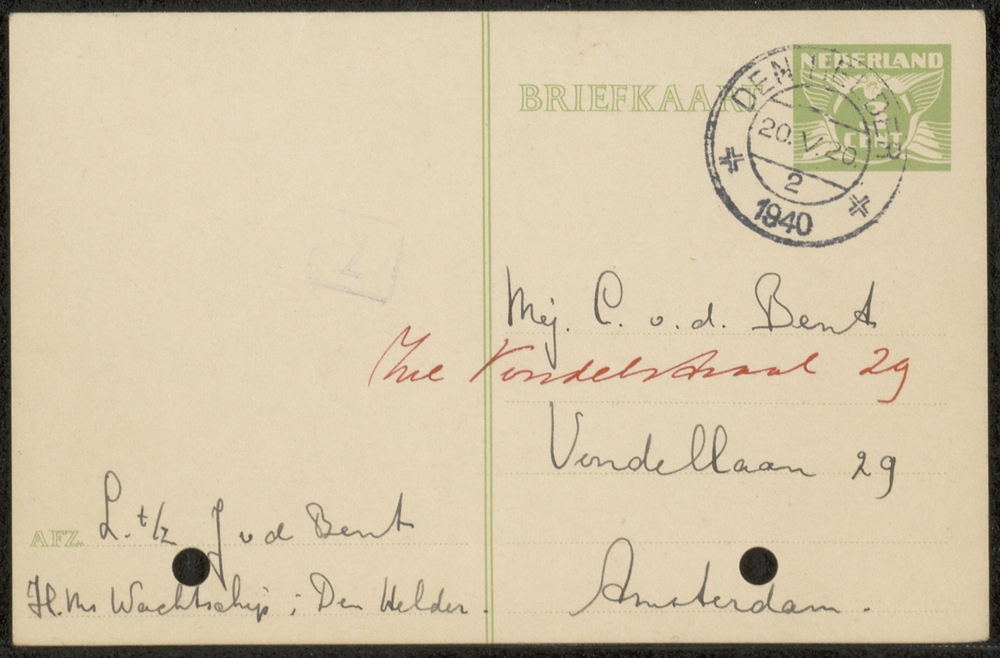 BRIEFKAART
NEDERLAND
2 CENT
DEN HELDER
20.V.20.
2
1940
Mej. C. v. d. Bent
Vondelstraat 29
Vondellaan 29
Amsterdam.
AFZ. L.t/z J v d Bent
H.Ms Wachtschip; Den Helder.